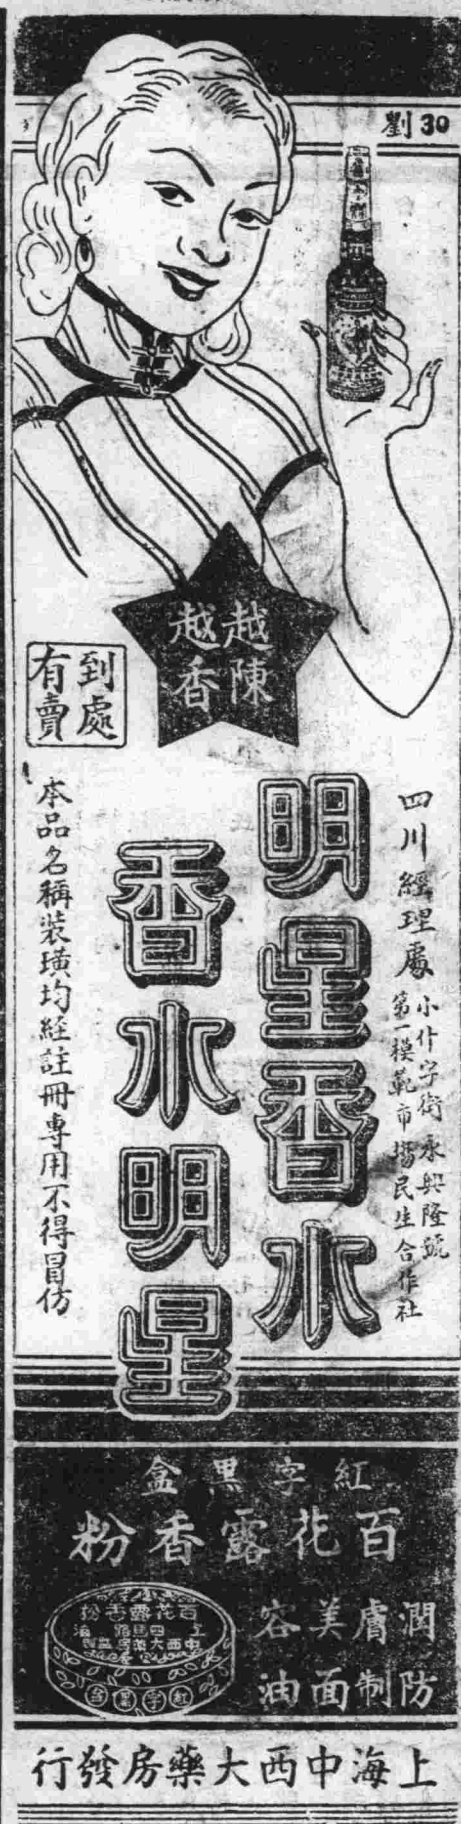 劉30
越陳
越香
到處
有賣
四川經理處
小什字街永興隆號
第一模範市場民生合作社
明星香水
香水明星
本品名稱裝璜均經註冊專用不得冒仿
紅字黑盒
百花露香粉
潤膚美容
防制面油
百花露香粉
上海
中西大藥房
紅字黑盒
上海中西大藥房發行